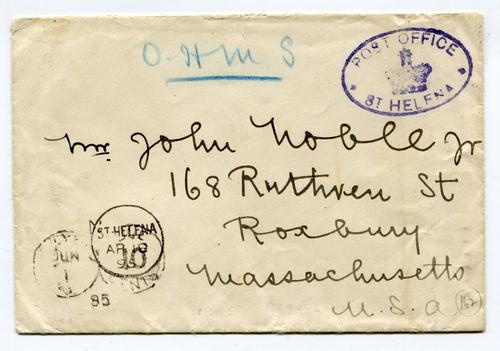 O.H.M.S
POST OFFICE
ST HELENA
Mr John Noble Jr
168 Ruthven St
Roxbury
Massachusetts
U.S.a
ST. HELENA
AP 18
95
10
JUN
1
95